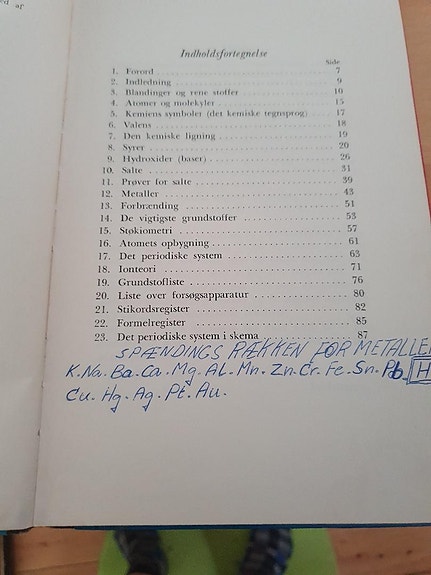 Indholdsfortegnelse
Side
1. Forord 7
2. Indledning 9
3. Blandinger og rene stoffer 10
4. Atomer og molekyler 15
5. Kemiens symboler (det kemiske tegnsprog) 17
6. Valens 18
7. Den kemiske ligning 19
8. Syrer 20
9. Hydroxider (baser) 26
10. Salte 31
11. Prøver for salte 39
12. Metaller 43
13. Forbrænding 51
14. De vigtigste grundstoffer 53
15. Støkiometri 57
16. Atomets opbygning 61
17. Det periodiske system 63
18. Ionteori 71
19. Grundstofliste 76
20. Liste over forsøgsapparatur 80
21. Stikordsregister 82
22. Formelregister 85
23. Det periodiske system i skema 87
SPÆNDINGS RÆKKEN FOR METALLE
K. Na. Ba. Ca. Mg. AL. Mn. Zn. Cr. Fe. Sn. Pb. H
Cu. Hg. Ag. Pt. Au.